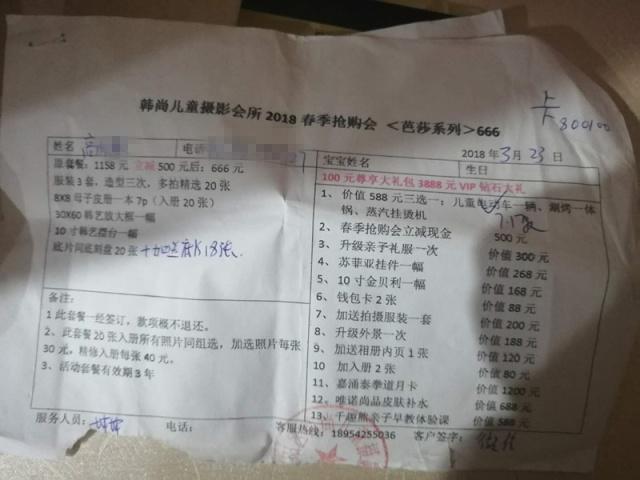 韩尚儿童摄影会所 2018 春季抢购会 <芭莎系列>666
卡
80000
姓名
电话
原套餐：1158 元 立减 500 元后：666 元
服装 3 套，造型三次，多拍精选 20 张
8X8 母子皮册一本 7p（入册 20 张）
30X60 韩艺放大框一幅
10 寸韩艺摆台一幅
底片同底刻盘 20 张
备注：
1 此套餐一经签订，款项概不退还。
2、此套餐 20 张入册所有照片同组选，加选照片每张
30 元，精修入册每张 40 元。
3、活动套餐有效期 3 年
服务人员：
电话：
2018 年 3 月 23 日
宝宝姓名
生日
100 元尊享大礼包 3888 元 VIP 钻石大礼
1、价值 588 元三选一：儿童电动车一辆、涮烤一体
锅、蒸汽挂烫机
2、春季抢购会立减现金 500 元
3、升级亲子礼服一次 价值 300 元
4、苏菲亚挂件一幅 价值 268 元
5、10 寸金贝利一幅 价值 168 元
6、钱包卡 2 张 价值 88 元
7、加送拍摄服装一套 价值 200 元
8、升级外景一次 价值 188 元
9、加送相册内页 1 张 价值 120 元
10 加入册 2 张 价值 80 元
11、嘉涌泰拳道月卡 价值 1200 元
12、唯诺尚品皮肤补水 价值 688 元
13、千趣熊亲子早教体验课 价值 588 元
客服热线：18954255036
客户签字：